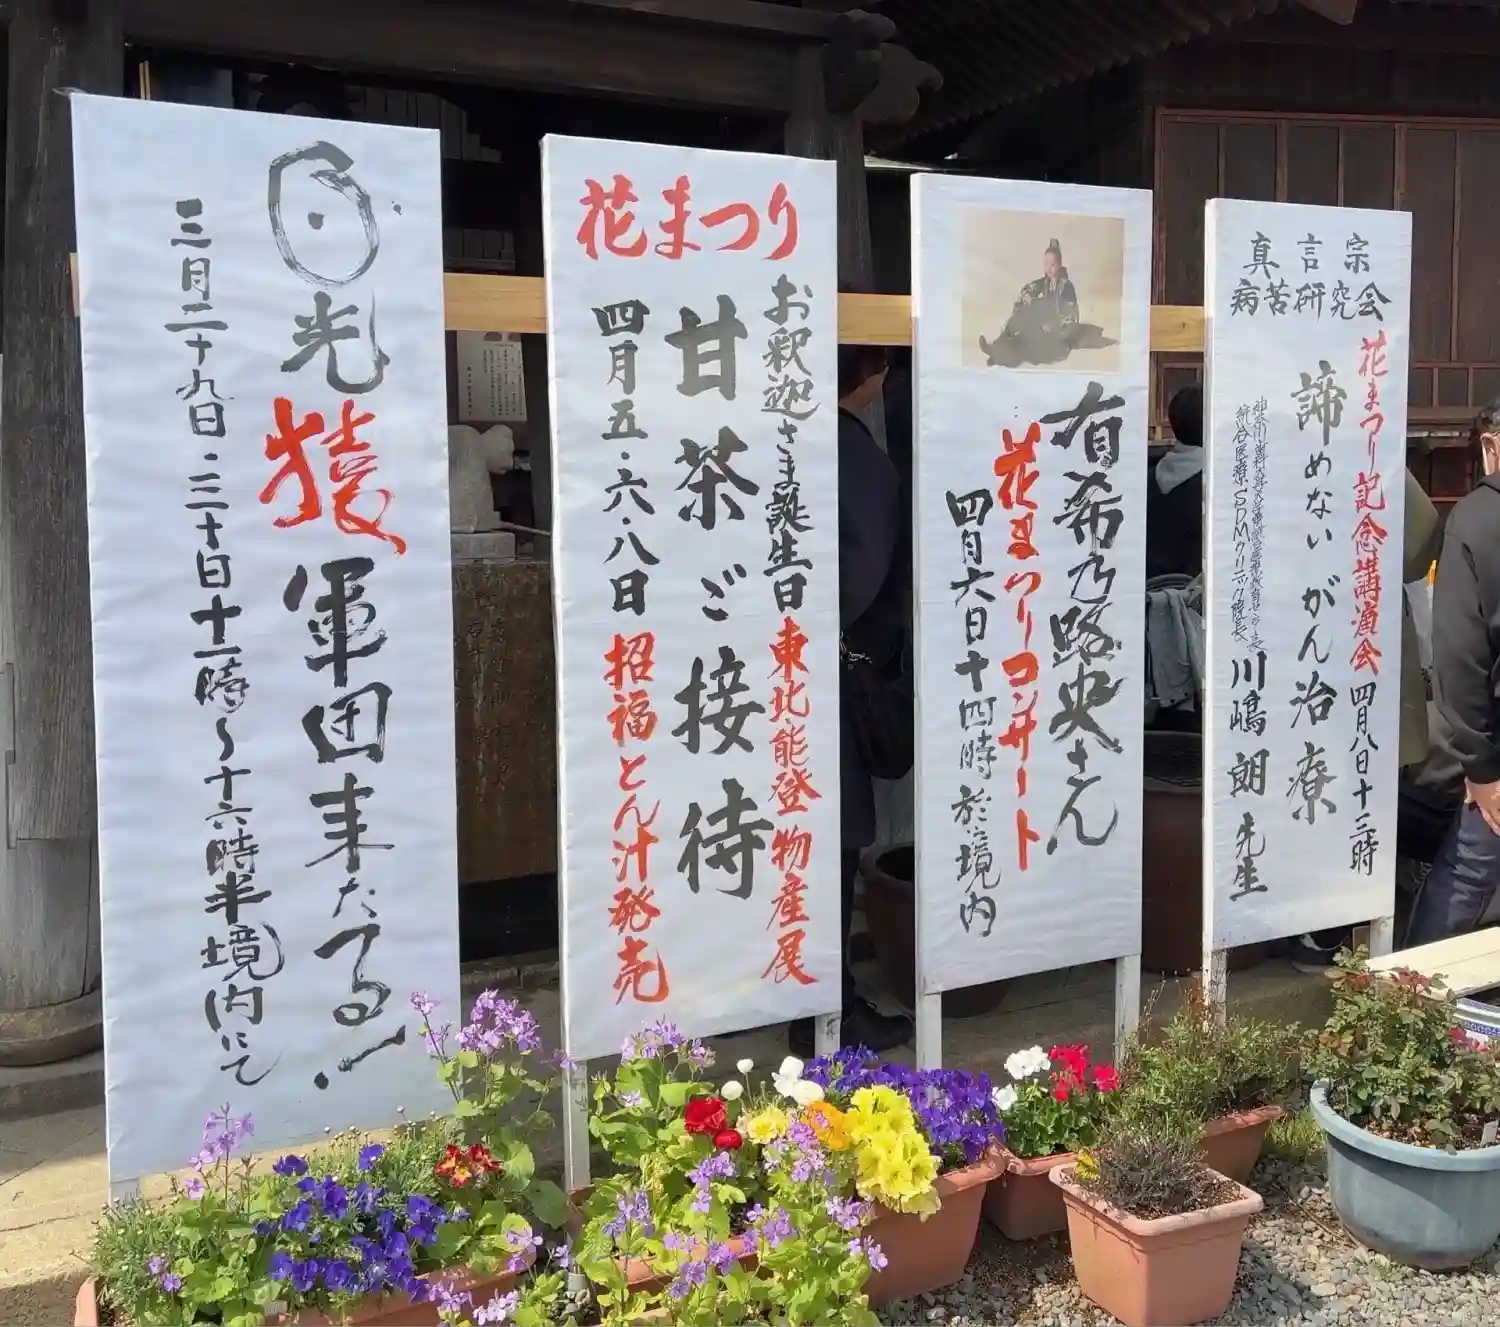 日光猿軍団来たる!
三月二十九日・三十日十一時〜十六時半境内にて
花まつり
お釈迦さま誕生日東北能登物産展
甘茶ご接待
四月五・六・八日招福とん汁発売
有希乃路央さん
花まつりコンサート
四月六日十四時於境内
真言宗
病苦研究会
花まつり記念講演会四月八日十三時
諦めないがん治療
渋谷医療SDMクリニック院長
川嶋朗先生